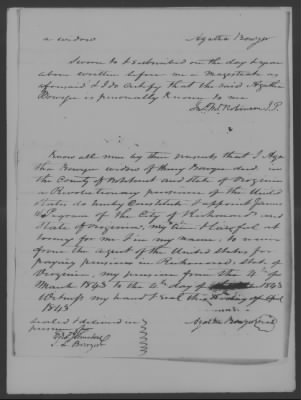 a widow Agatha Bowyer
Sworn to & subscribed on the day & year
above written before me a Magistrate as
aforesaid & I do certify that the said Agatha
Bowyer is personally known to me
Robinson J.P.
Know all men by these presents that I Aga
tha Bowyer widow of Henry Bowyer decd in
the County of Botetourt and State of Virginia
a Revolutionary pensioner of the United
States do hereby Constitute & appoint James
Pegram of the City of Richmond and
State of Virginia, my true & Lawful at
torney for me & in my name, to receive
from the agent of the United States for
paying pensions in Richmond, State of
Virginia, my pension from the 4th of
March 1843 to the 4th day of 1843
Witness my hand & seal this day of
1843
sealed & delivered in Agatha Bowyer seal
presence of
Bowyer